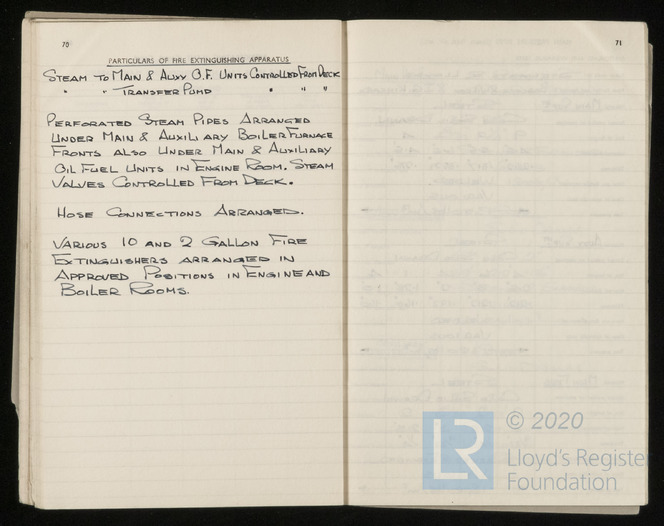 70
PARTICULARS OF FIRE EXTINGUISHING APPARATUS
STEAM TO MAIN & AUXY O.F. UNITS CONTROLLED FROM DECK
" " TRANSFER PUMP " " "
PERFORATED STEAM PIPES ARRANGED
UNDER MAIN & AUXILIARY BOILER FURNACE
FRONTS ALSO UNDER MAIN & AUXILIARY
OIL FUEL UNITS IN ENGINE ROOM. STEAM
VALVES CONTROLLED FROM DECK.
HOSE CONNECTIONS ARRANGED.
VARIOUS 10 AND 2 GALLON FIRE
EXTINGUISHERS ARRANGED IN
APPROVED POSITIONS IN ENGINE AND
BOILER ROOMS.
71
LR
© 2020
Lloyd's Register
Foundation